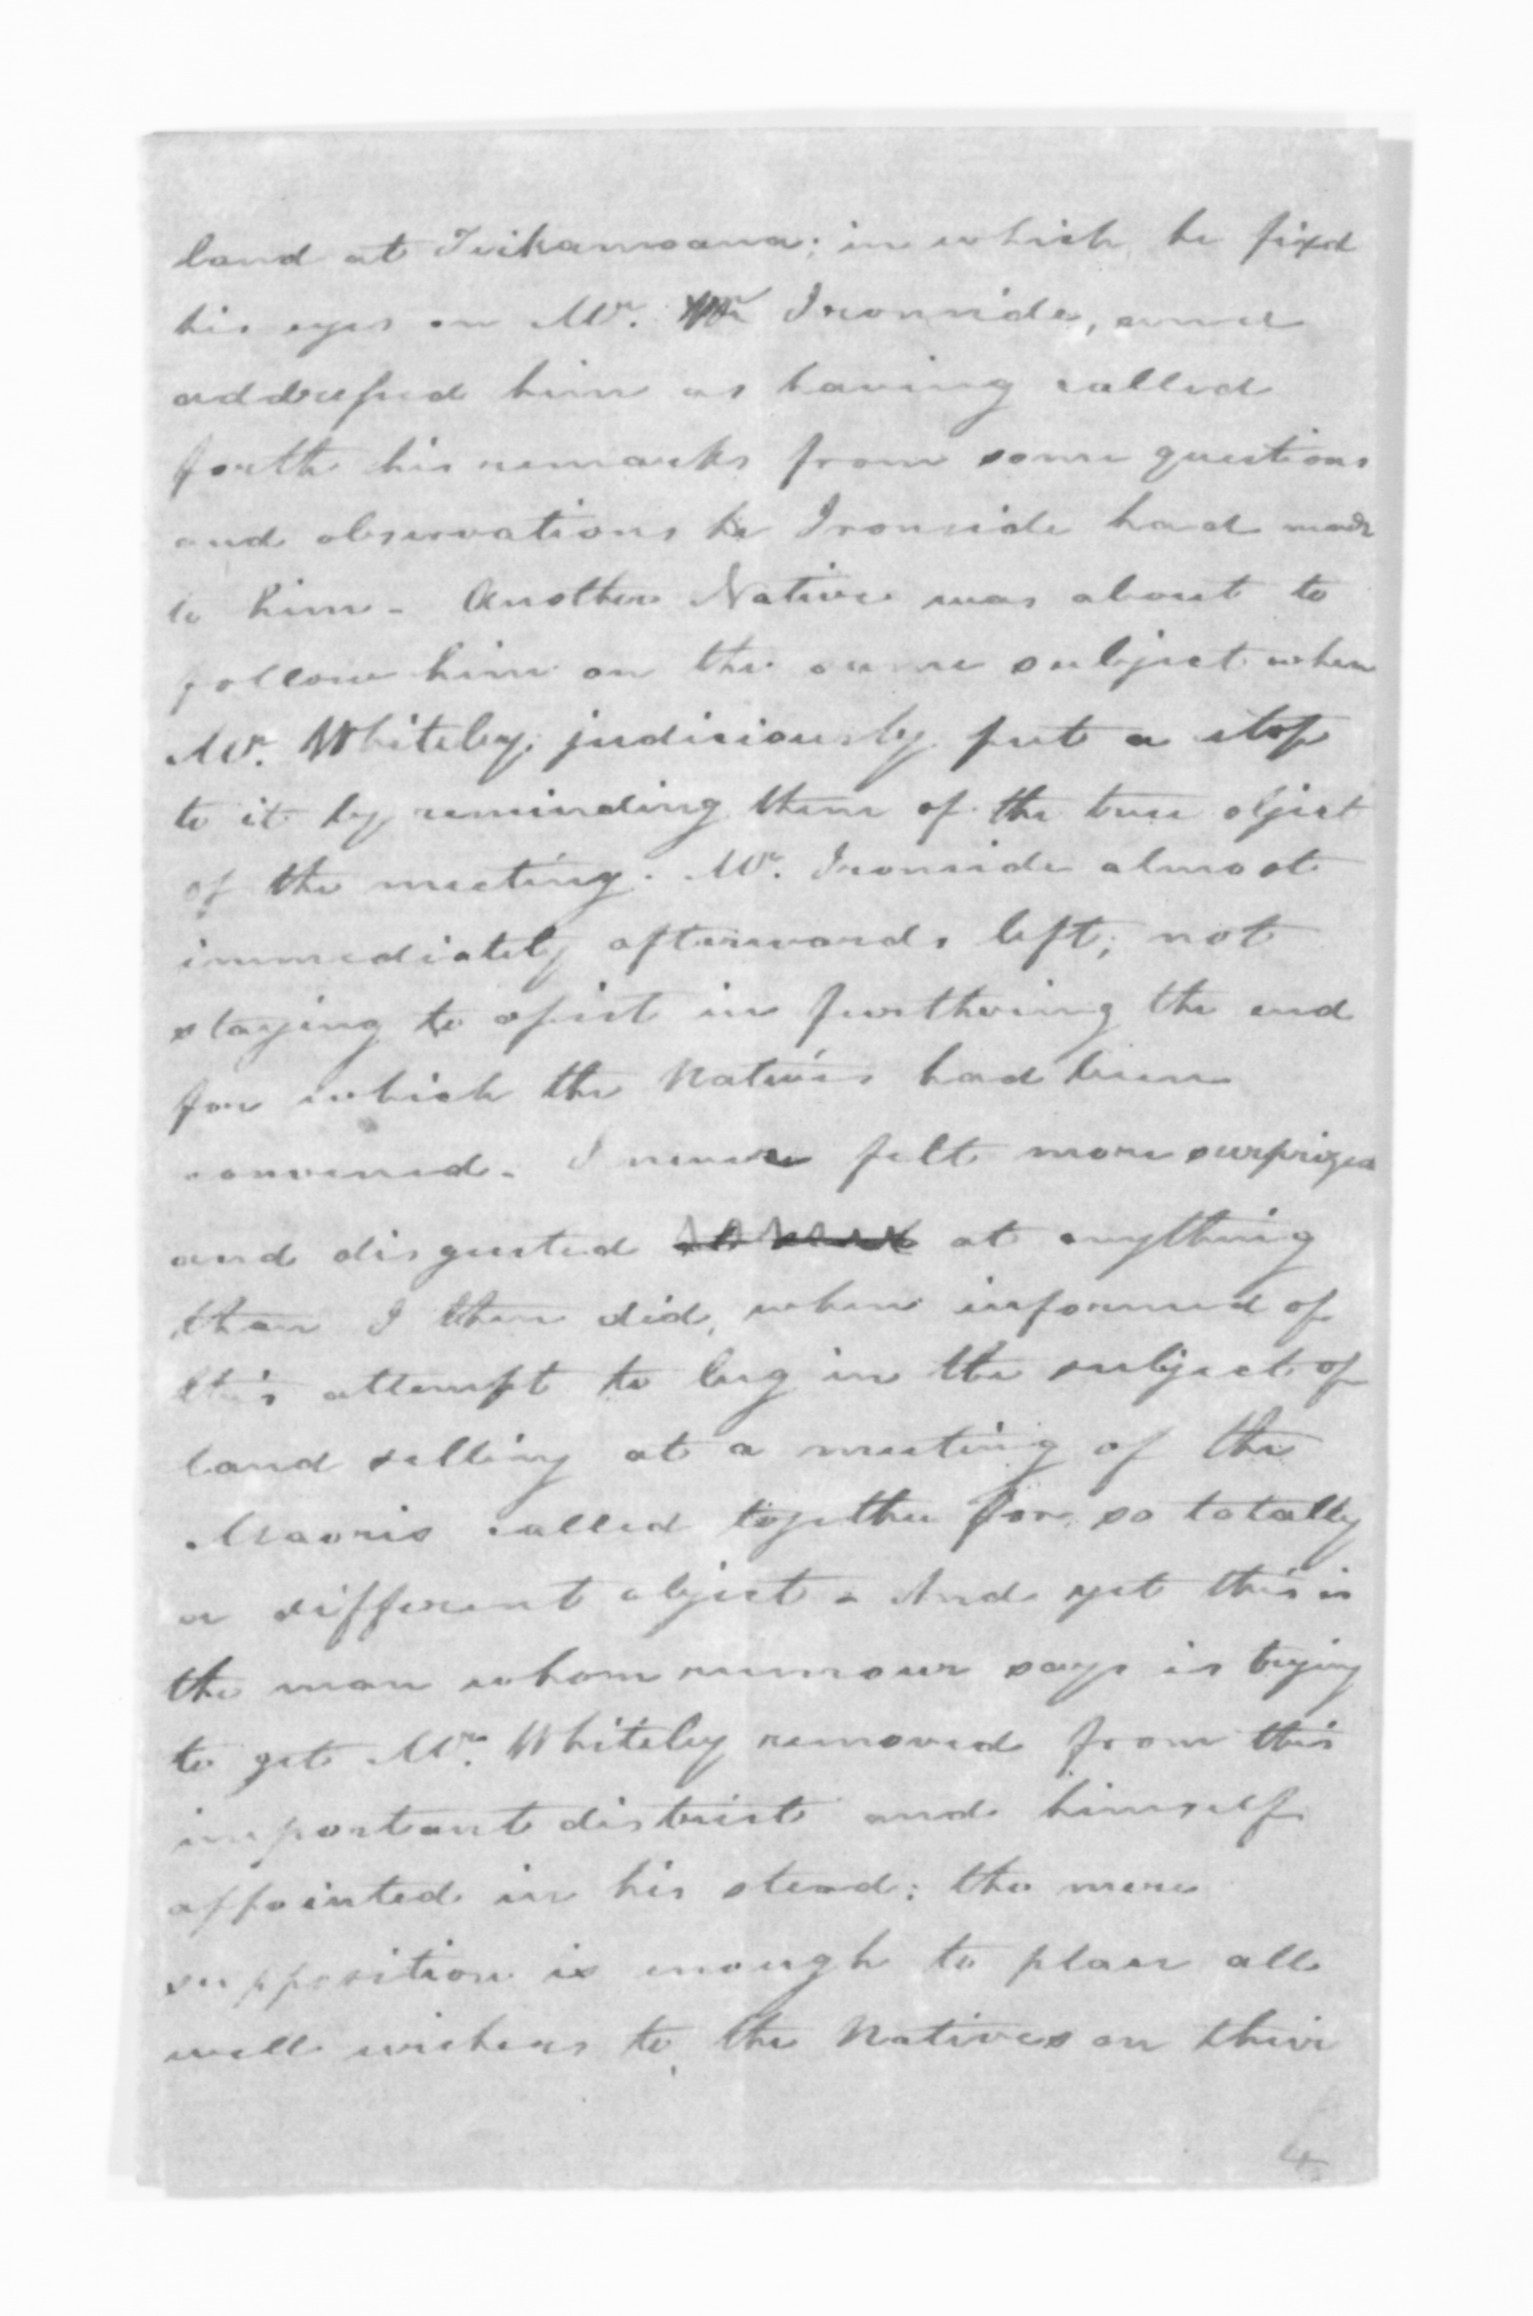 land at Teikamoana; in which he fixd
his eyes on Mr. Ironside, and
addressed him as having called
forth his remarks from some questions
and observations he Ironside had made
to him - Another Native was about to
follow him on the same subject when
Mr. Whiteley judiciously put a stop
to it by reminding them of the true object
of the meeting. Mr. Ironside almost
immediately afterwards left; not
staying to assist in furthering the end
for which the Natives had been
convened. I never felt more surprized
and disgusted at anything
than I then did, when informed of
this attempt to lug in the subject of
land selling at a meeting of the
Maoris called together for so totally
a different object - And yet this is
the man whom rumour says is trying
to get Mr. Whiteley removed from this
important district and himself
appointed in his stead; the mere
supposition is enough to place all
well wishers to the Natives on their
4